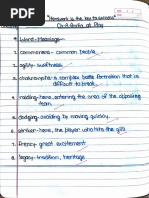 "Homework is the key to success"
On India at Play
* Word-Meanings
1. commoners- common people
2. agility- swiftness
3. chakravyuha- a complex battle formation that is
difficult to break
4. raiding- hero, entering the area of the opposing
team
5. dodging- avoiding by moving quickly
6. striker- here, the player who hits the gilli
7. frenzy- great excitement
8. legacy- tradition, heritage